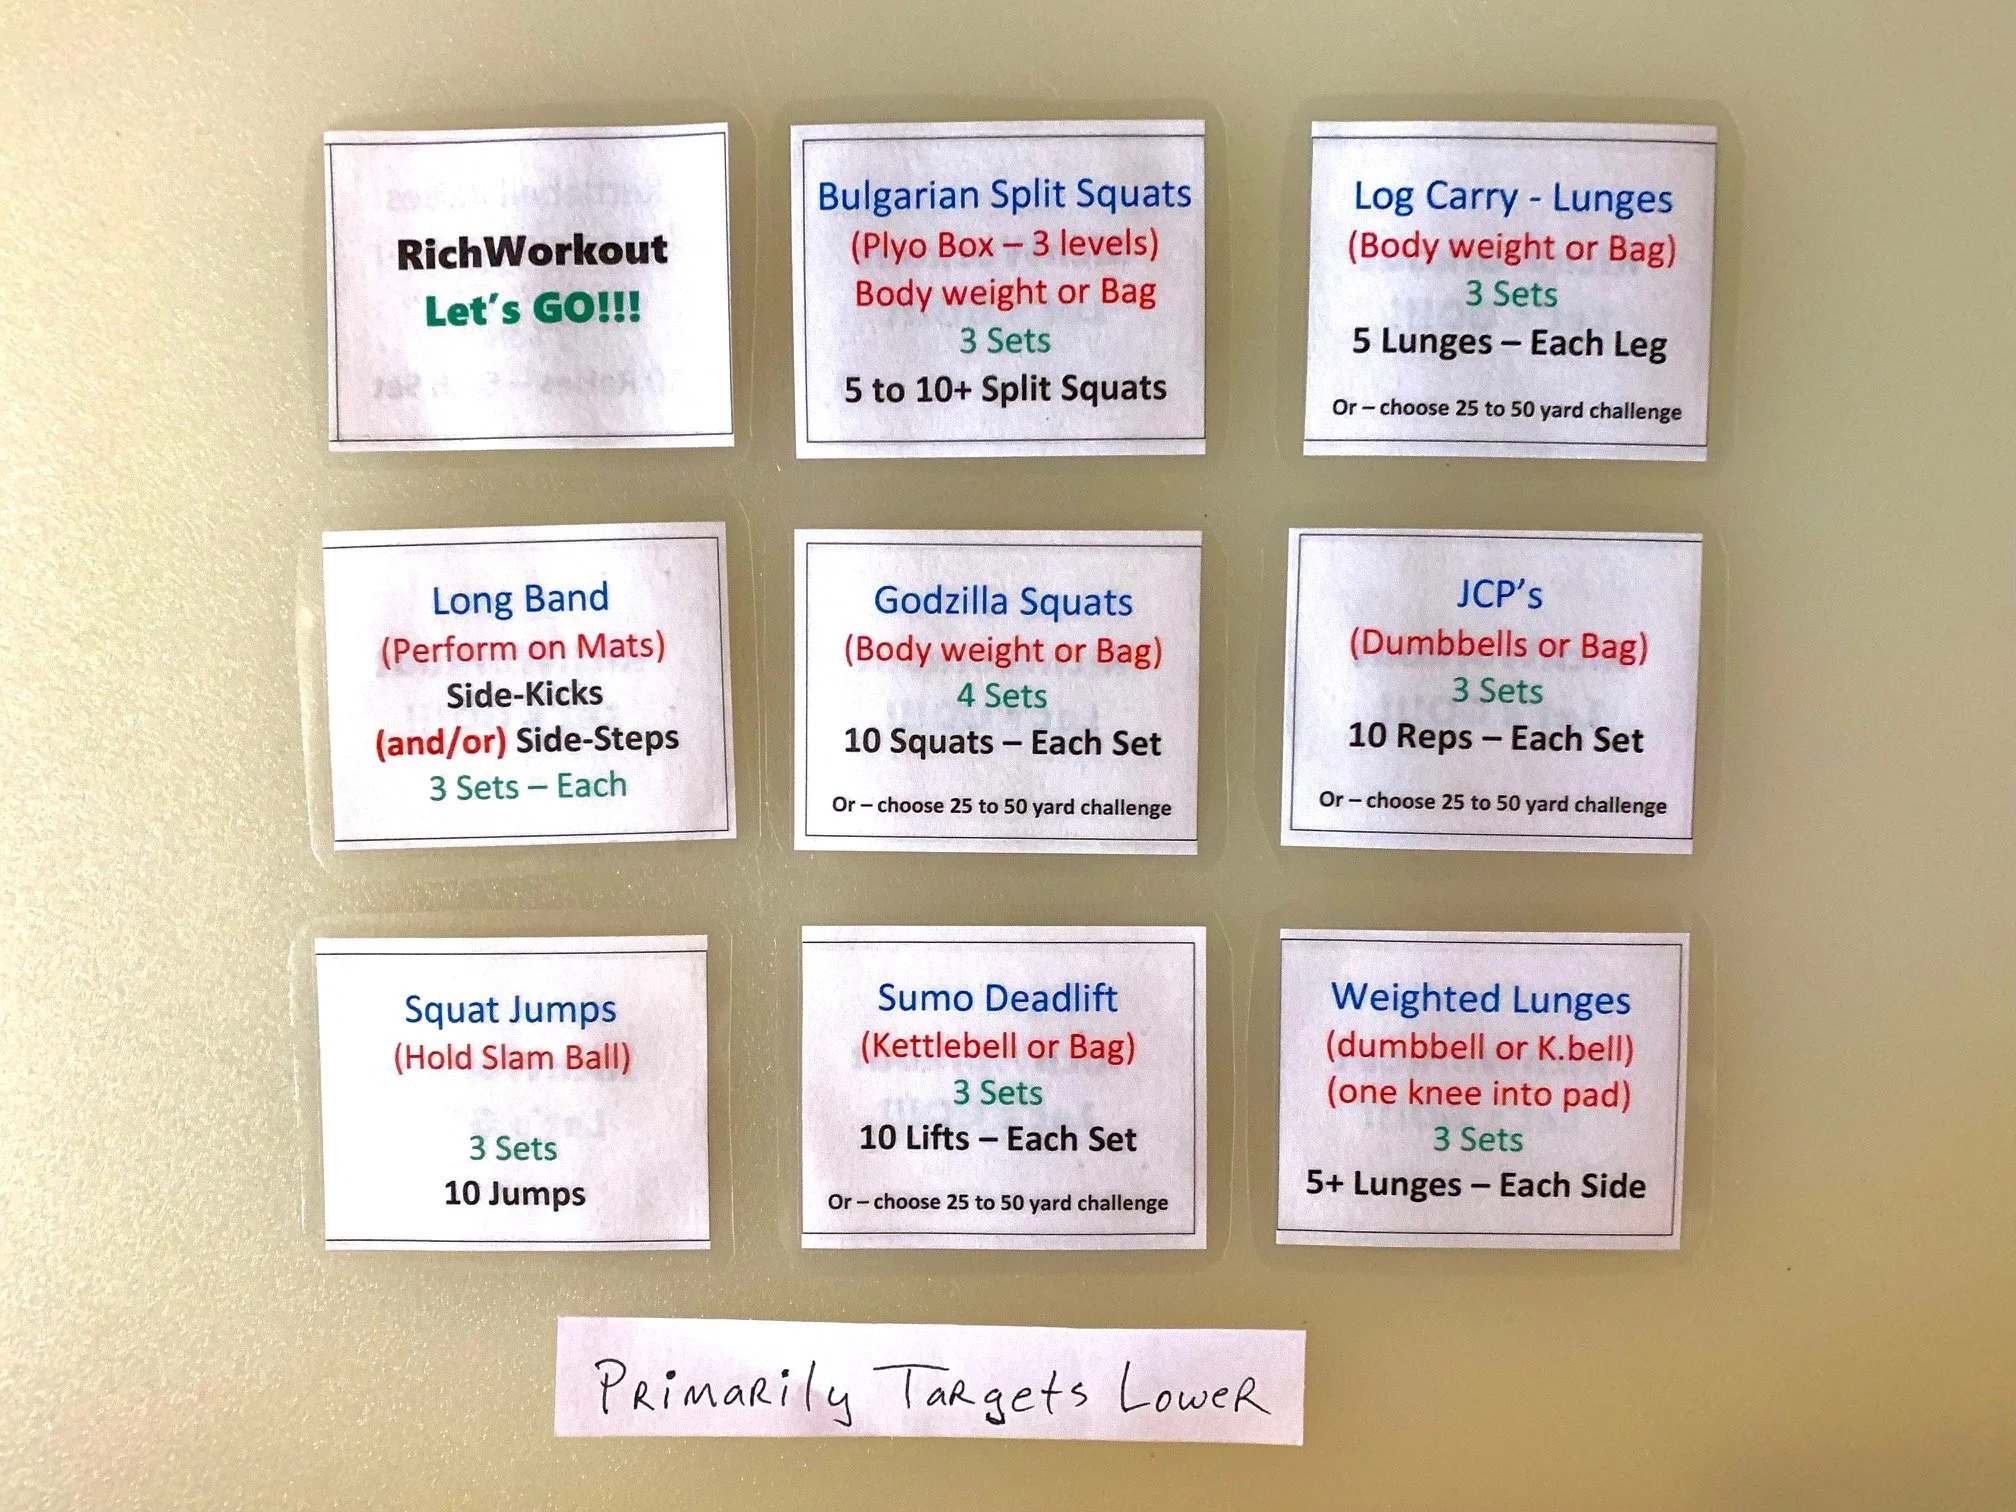 RichWorkout
Let's GO!!!
Bulgarian Split Squats
(Plyo Box – 3 levels)
Body weight or Bag
3 Sets
5 to 10+ Split Squats
Log Carry - Lunges
(Body weight or Bag)
3 Sets
5 Lunges – Each Leg
Or – choose 25 to 50 yard challenge
Long Band
(Perform on Mats)
Side-Kicks
(and/or) Side-Steps
3 Sets – Each
Godzilla Squats
(Body weight or Bag)
4 Sets
10 Squats – Each Set
Or – choose 25 to 50 yard challenge
JCP's
(Dumbbells or Bag)
3 Sets
10 Reps – Each Set
Or – choose 25 to 50 yard challenge
Squat Jumps
(Hold Slam Ball)
3 Sets
10 Jumps
Sumo Deadlift
(Kettlebell or Bag)
3 Sets
10 Lifts – Each Set
Or – choose 25 to 50 yard challenge
Weighted Lunges
(dumbbell or K.bell)
(one knee into pad)
3 Sets
5+ Lunges – Each Side
Primarily Targets Lower